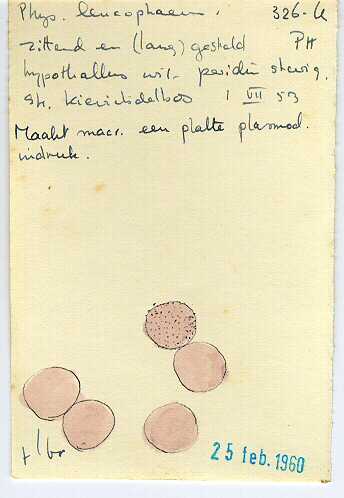 Phys. leucophaeum. 326-k
zittend en (lang) gesteld PH
hypothallus wit- peridie stevig.
St. Kievitsdelbos 1 VII 53
Maakt macr. een platte plasmod.
indruk.
25 feb. 1960